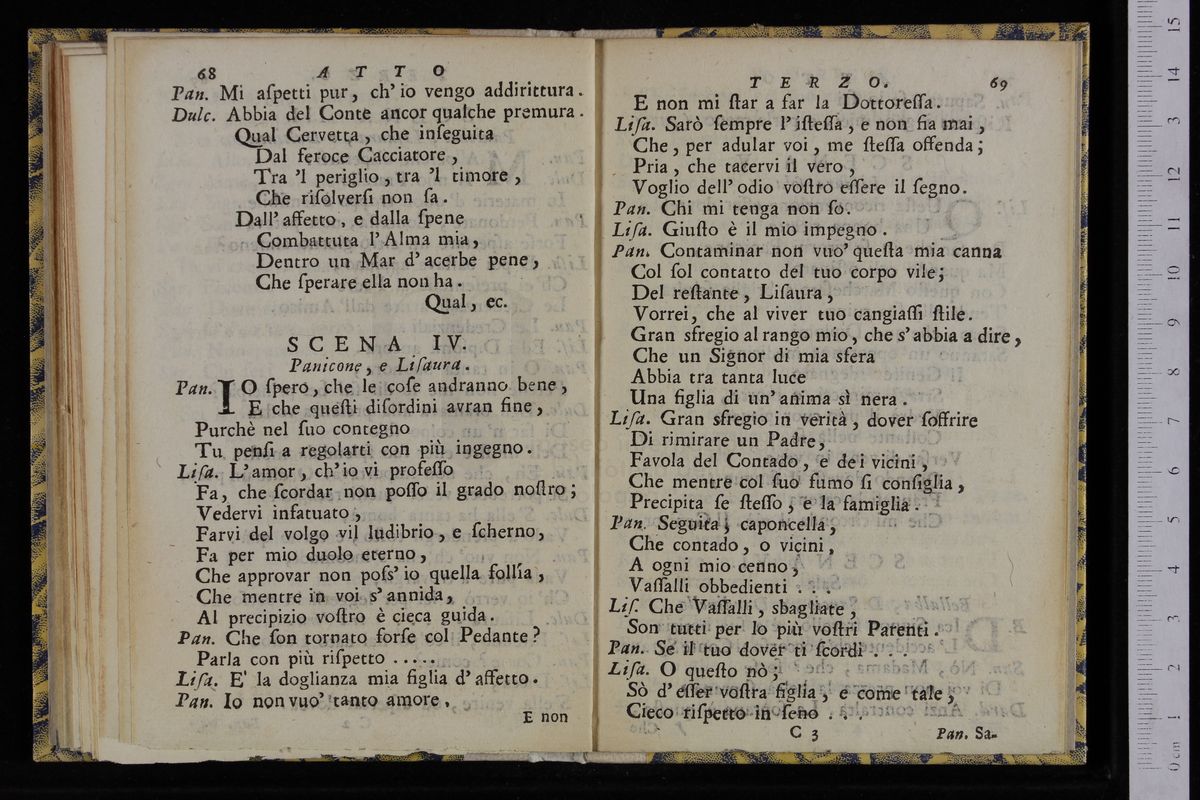 68 A T T O
Pan. Mi aſpetti pur, ch' io vengo addirittura.
Dulc. Abbia del Conte ancor qualche premura.
Qual Cervetta, che inſeguita
Dal feroce Cacciatore,
Tra 'l periglio, tra 'l timore,
Che riſolverſi non ſa.
Dall' affetto, e dalla ſpene
Combattuta l' Alma mia,
Dentro un Mar d' acerbe pene,
Che ſperare ella non ha.
Qual, ec.
SCENA IV.
Panicone, e Liſaura.
Pan. IO ſpero, che le coſe andranno bene,
E che queſti diſordini avran fine,
Purchè nel ſuo contegno
Tu penſi a regolarti con più ingegno.
Liſa. L' amor, ch' io vi profeſſo
Fa, che ſcordar non poſſo il grado noſtro;
Vedervi infatuato,
Farvi del volgo vil ludibrio, e ſcherno,
Fa per mio duolo eterno,
Che approvar non poſs' io quella follía,
Che mentre in voi s' annida,
Al precipizio voſtro è cieca guida.
Pan. Che ſon tornato forſe col Pedante?
Parla con più riſpetto . . . . .
Liſa. E' la doglianza mia figlia d' affetto.
Pan. Io non vuo' tanto amore,
E non
T E R Z O. 69
E non mi ſtar a far la Dottoreſſa.
Liſa. Sarò ſempre l' iſteſſa, e non fia mai,
Che, per adular voi, me ſteſſa offenda;
Pria, che tacervi il vero,
Voglio dell' odio voſtro eſſere il ſegno.
Pan. Chi mi tenga non ſo.
Liſa. Giuſto è il mio impegno.
Pan. Contaminar non vuo' queſta mia canna
Col ſol contatto del tuo corpo vile;
Del reſtante, Liſaura,
Vorrei, che al viver tuo cangiaſſi ſtile.
Gran sfregio al rango mio, che s' abbia a dire,
Che un Signor di mia sfera
Abbia tra tanta luce
Una figlia di un' anima sì nera.
Liſa. Gran sfregio in verità, dover ſoffrire
Di rimirare un Padre,
Favola del Contado, e dei vicini,
Che mentre col ſuo fumo ſi conſiglia,
Precipita ſe ſteſſo, e la famiglia.
Pan. Seguita, caponcella,
Che contado, o vicini,
A ogni mio cenno,
Vaſſalli obbedienti . . .
Liſ. Che Vaſſalli, sbagliate,
Son tutti per lo più voſtri Parenti.
Pan. Se il tuo dover ti ſcordi . . .
Liſa. O queſto nò;
Sò d' eſſer voſtra figlia, e come tale,
Cieco riſpetto in ſeno . . .
C 3 Pan. Sa-
0 cm 1 2 3 4 5 6 7 8 9 10 11 12 13 14 15